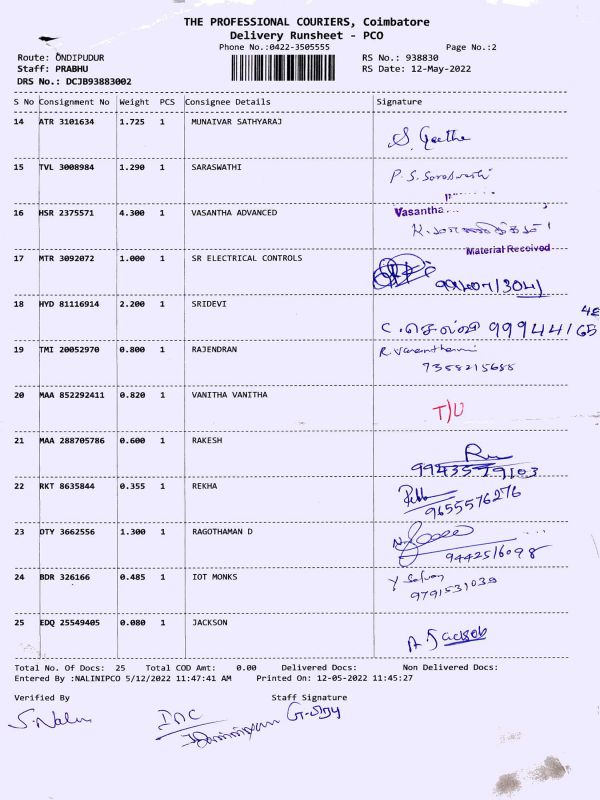 THE PROFESSIONAL COURIERS, Coimbatore
Delivery Runsheet - PCO
Phone No.:0422-3505555 Page No.:2
Route: ONDIPUDUR RS No.: 938830
Staff: PRABHU RS Date: 12-May-2022
DRS No.: DCJB93883002
S No Consignment No Weight PCS Consignee Details Signature
14 ATR 3101634 1.725 1 MUNAIVAR SATHYARAJ
S. Geetha
15 TVL 3008984 1.290 1 SARASWATHI
P. S. Saraswathi
16 HSR 2375571 4.300 1 VASANTHA ADVANCED
Vasantha
Material Received
17 MTR 3092072 1.000 1 SR ELECTRICAL CONTROLS
18 HYD 81116914 2.200 1 SRIDEVI
99944165
19 TMI 20052970 0.800 1 RAJENDRAN
7358215688
20 MAA 852292411 0.820 1 VANITHA VANITHA
T/U
21 MAA 288705786 0.600 1 RAKESH
22 RKT 8635844 0.355 1 REKHA
9655576276
23 OTY 3662556 1.300 1 RAGOTHAMAN D
9442516098
24 BDR 326166 0.485 1 IOT MONKS
9791531039
25 EDQ 25549405 0.080 1 JACKSON
A. Jackson
Total No. Of Docs: 25 Total COD Amt: 0.00 Delivered Docs: Non Delivered Docs:
Entered By :NALINIPCO 5/12/2022 11:47:41 AM Printed On: 12-05-2022 11:45:27
Verified By Staff Signature
S. Nalini